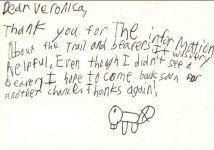 Dear Veronica,
Thank you for The informattion
About the Trail and bearers It was very
Helpful. Even though I didn't see a
beaver I hope to come back soon for
another chance. Thanks again!